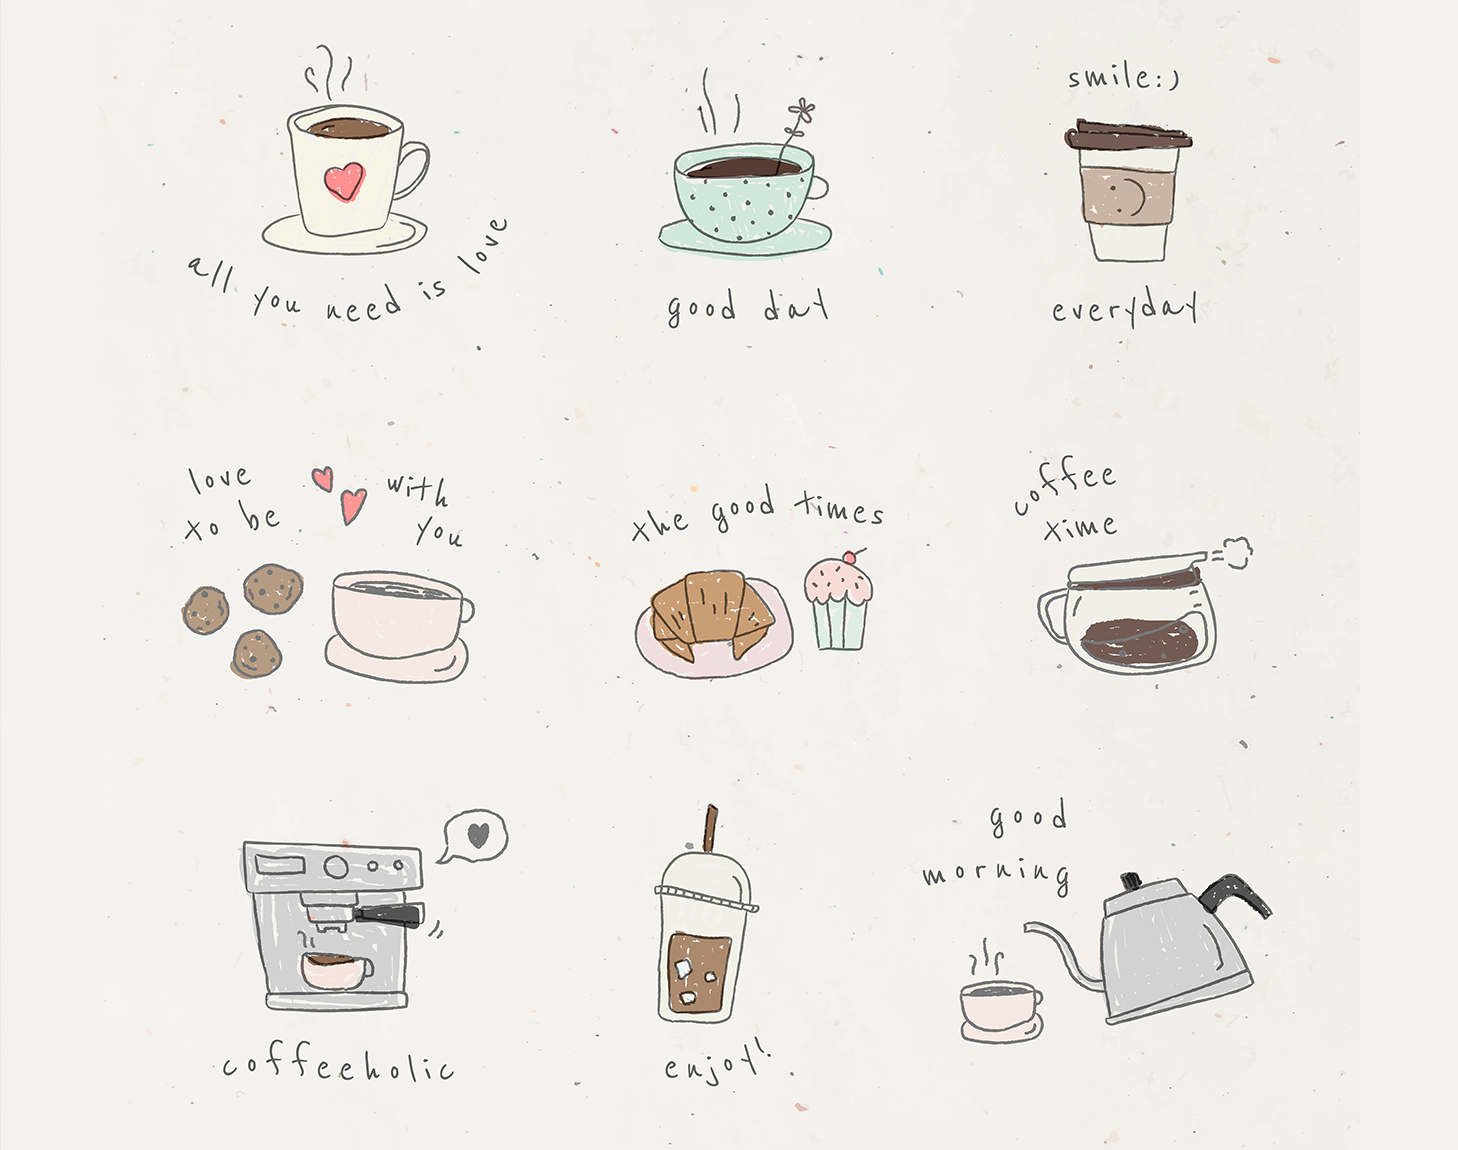 all you need is love
good day
smile:)
everyday
love
to be
with
you
the good times
coffee
time
coffeeholic
enjoy!
good
morning